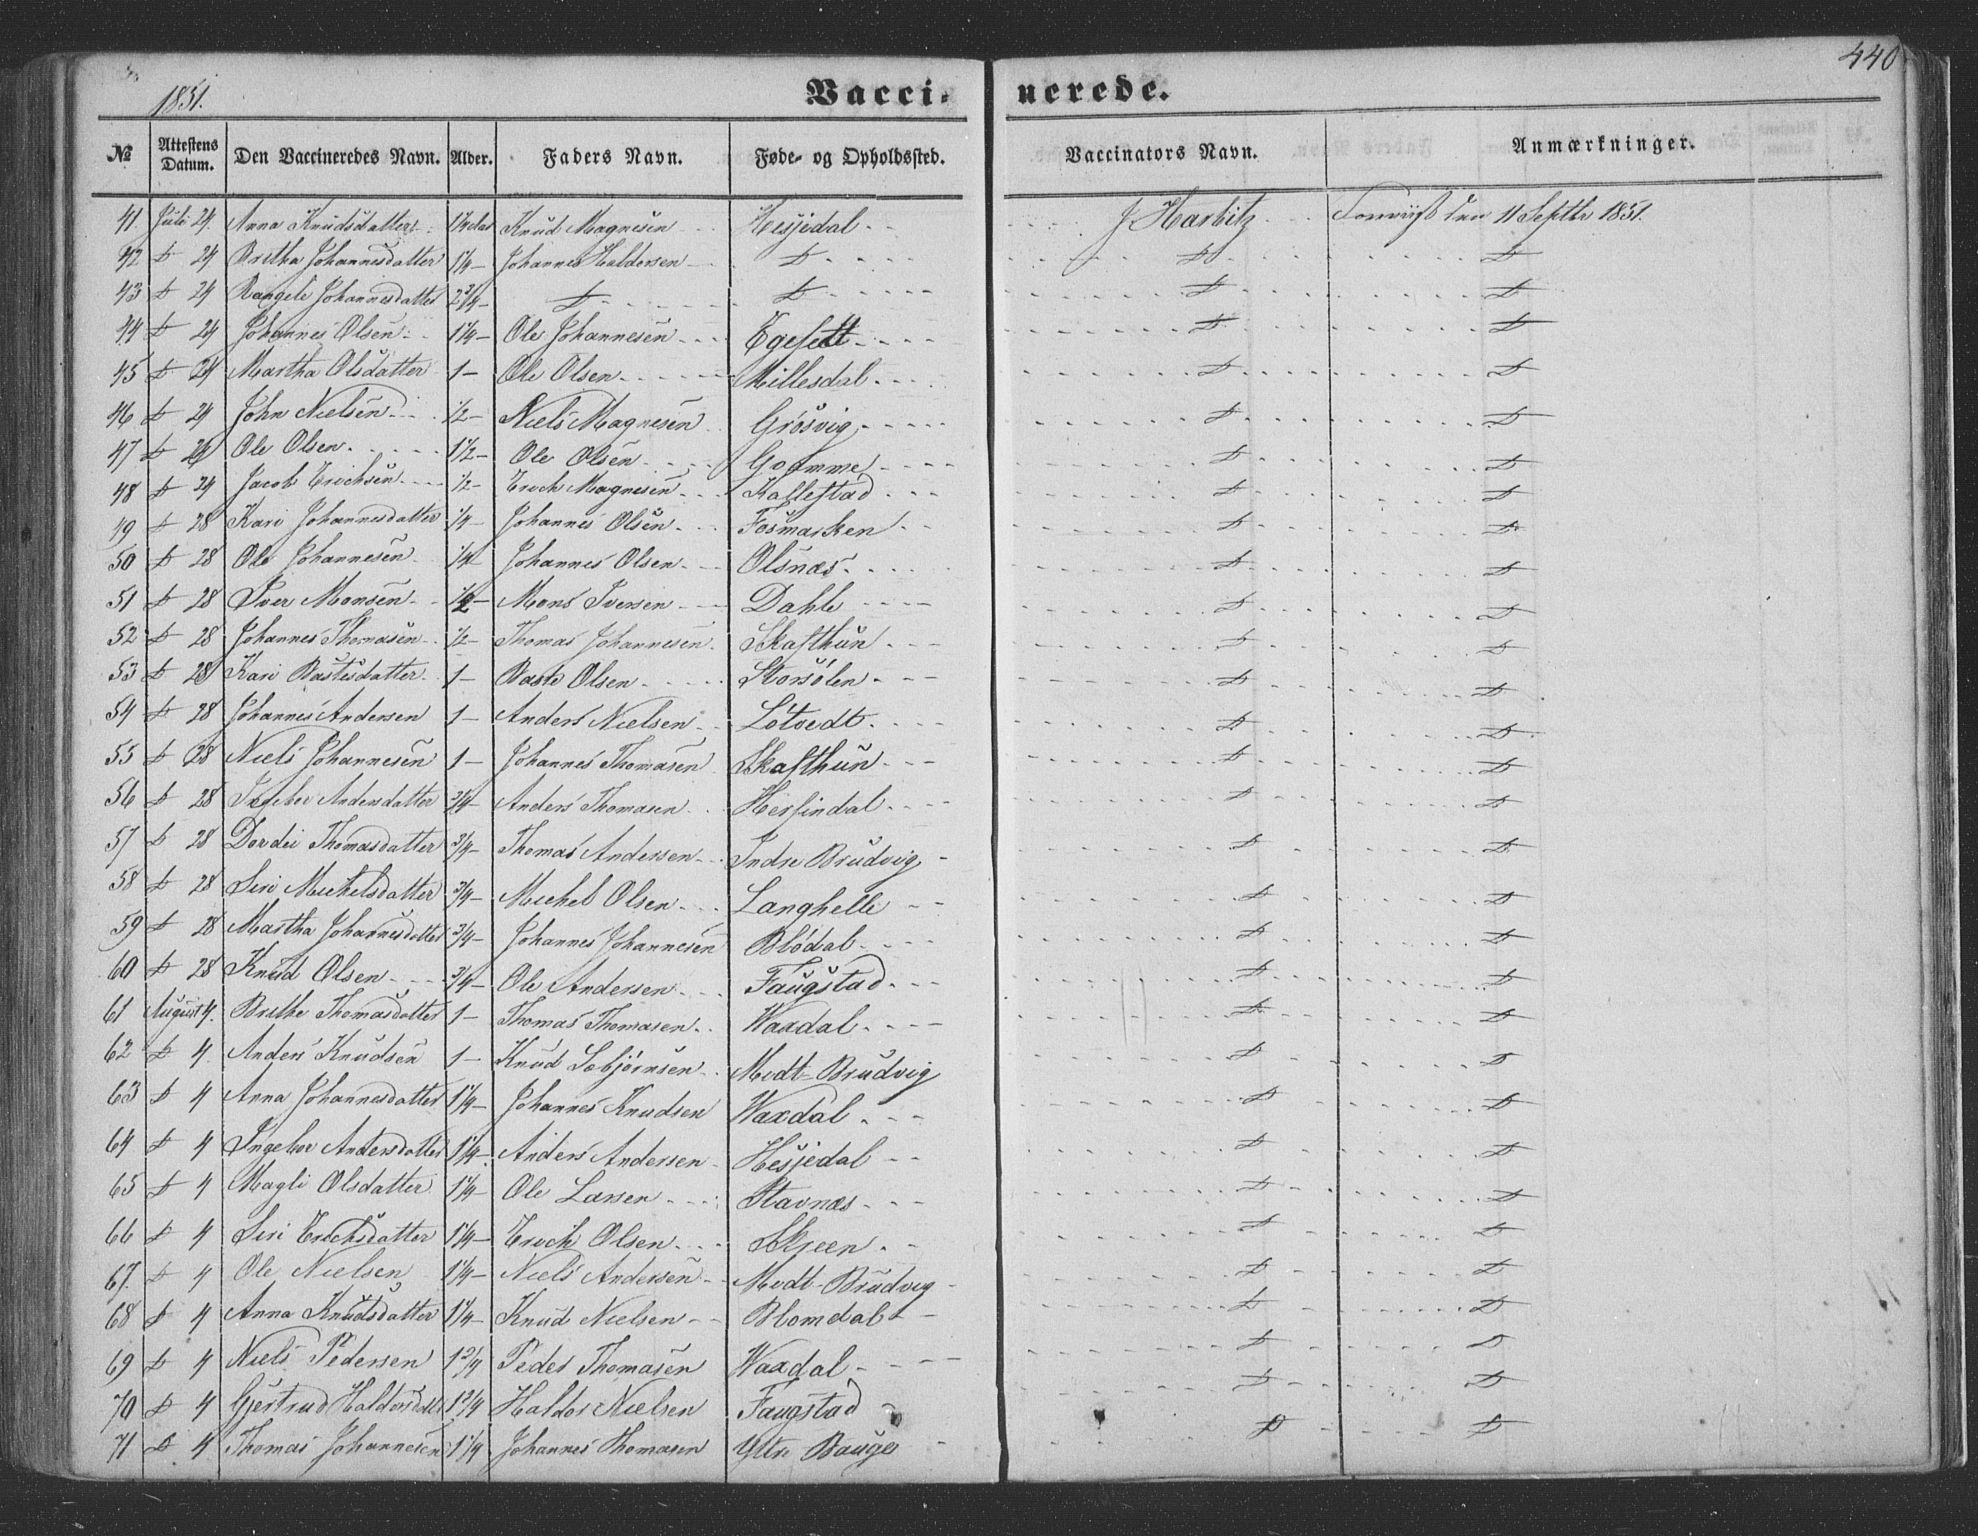 440
1851.
Vacci- nerede.
№ Attestens Datum. Den Vaccineredes Navn. Alder. Faders Navn. Føde- og Opholdssted. Vaccinators Navn. Anmærkninger.
41 Juli 24. Anna Knudsdatter Knud Magnesen Hesjedal J Harbitz den 11 Septbr 1851.
42 D 24 Britha Johannesdatter 1¼ Johannes Haldersen D D D
43 D 24 Rangele Johannesdatter 2¾ D D D D
44 D 24 Johannes Olsen 1¼ Ole Johannesen D D
45 D 24 Martha Olsdatter 1 Ole Olsen Millesdal D D
46 D 24 John Nielsen ½ Niels Magnesen Grøsvig D D
47 D 24 Ole Olsen 1½ Ole Olsen Gramme D D
48 D 24 Jacob Erichsen ½ Erich Magnesen Kallestad D D
49 D 28 Kari Johannesdatter ¼ Johannes Olsen Fosmarken D D
50 D 28 Ole Johannesen ¼ Johannes Olsen Olsnæs D D
51 D 28 Iver Monsen ½ Mons Iversen Dahle D D
52 D 28 Johannes Thomasen ½ Thomas Johannesen Skafthun D D
53 D 28 Kari Bastesdatter 1 Baste Olsen Storsølen D D
54 D 28 Johannes Andersen 1 Anders Nielsen Løtvedt D D
55 D 28 Niels Johannesen 1 Johannes Thomasen Skafthun D D
56 D 28 Ingebor Andersdatter ¾ Anders Thomasen Herfindal D D
57 D 28 Dordei Thomasdatter ¾ Thomas Andersen Indre Brudvig D D
58 D 28 Siri Michelsdatter ¾ Michel Olsen Langhelle D D
59 D 28 Martha Johannesdatter ¾ Johannes Johannesen Blødal D D
60 D 28 Knud Olsen ¾ Ole Andersen Faugstad D D
61 August 4. Brithe Thomasdatter 1 Thomas Thomasen Waxdal D D
62 D 4. Anders Knudsen 1 Knud Sebjørnsen Midt-Brudvig D D
63 D 4 Anna Johannesdatter 1¼ Johannes Knudsen Waxdal D D
64 D 4 Ingebor Andersdatter 1¼ Anders Andersen Hesjedal D D
65 D 4 Magli Olsdatter 1¼ Ole Larsen Stavnæs D D
66 D 4 Siri Erichsdatter 1¼ Erich Olsen Skjeen D D
67. D 4 Ole Nielsen 1¼ Niels Andersen Midt-Brudvig D D
68 D 4 Anna Knudsdatter 1¼ Knud Nielsen Blomdal D D
69 D 4 Niels Pedersen 1¾ Peder Thomasen Waxdal D D
70 D 4 Gjertrud Haldorsdatter 1¾ Haldor Nielsen Faugstad D D
71 D 4 Thomas Johannesen 1¼ Johannes Thomasen Yttre Bauge D D